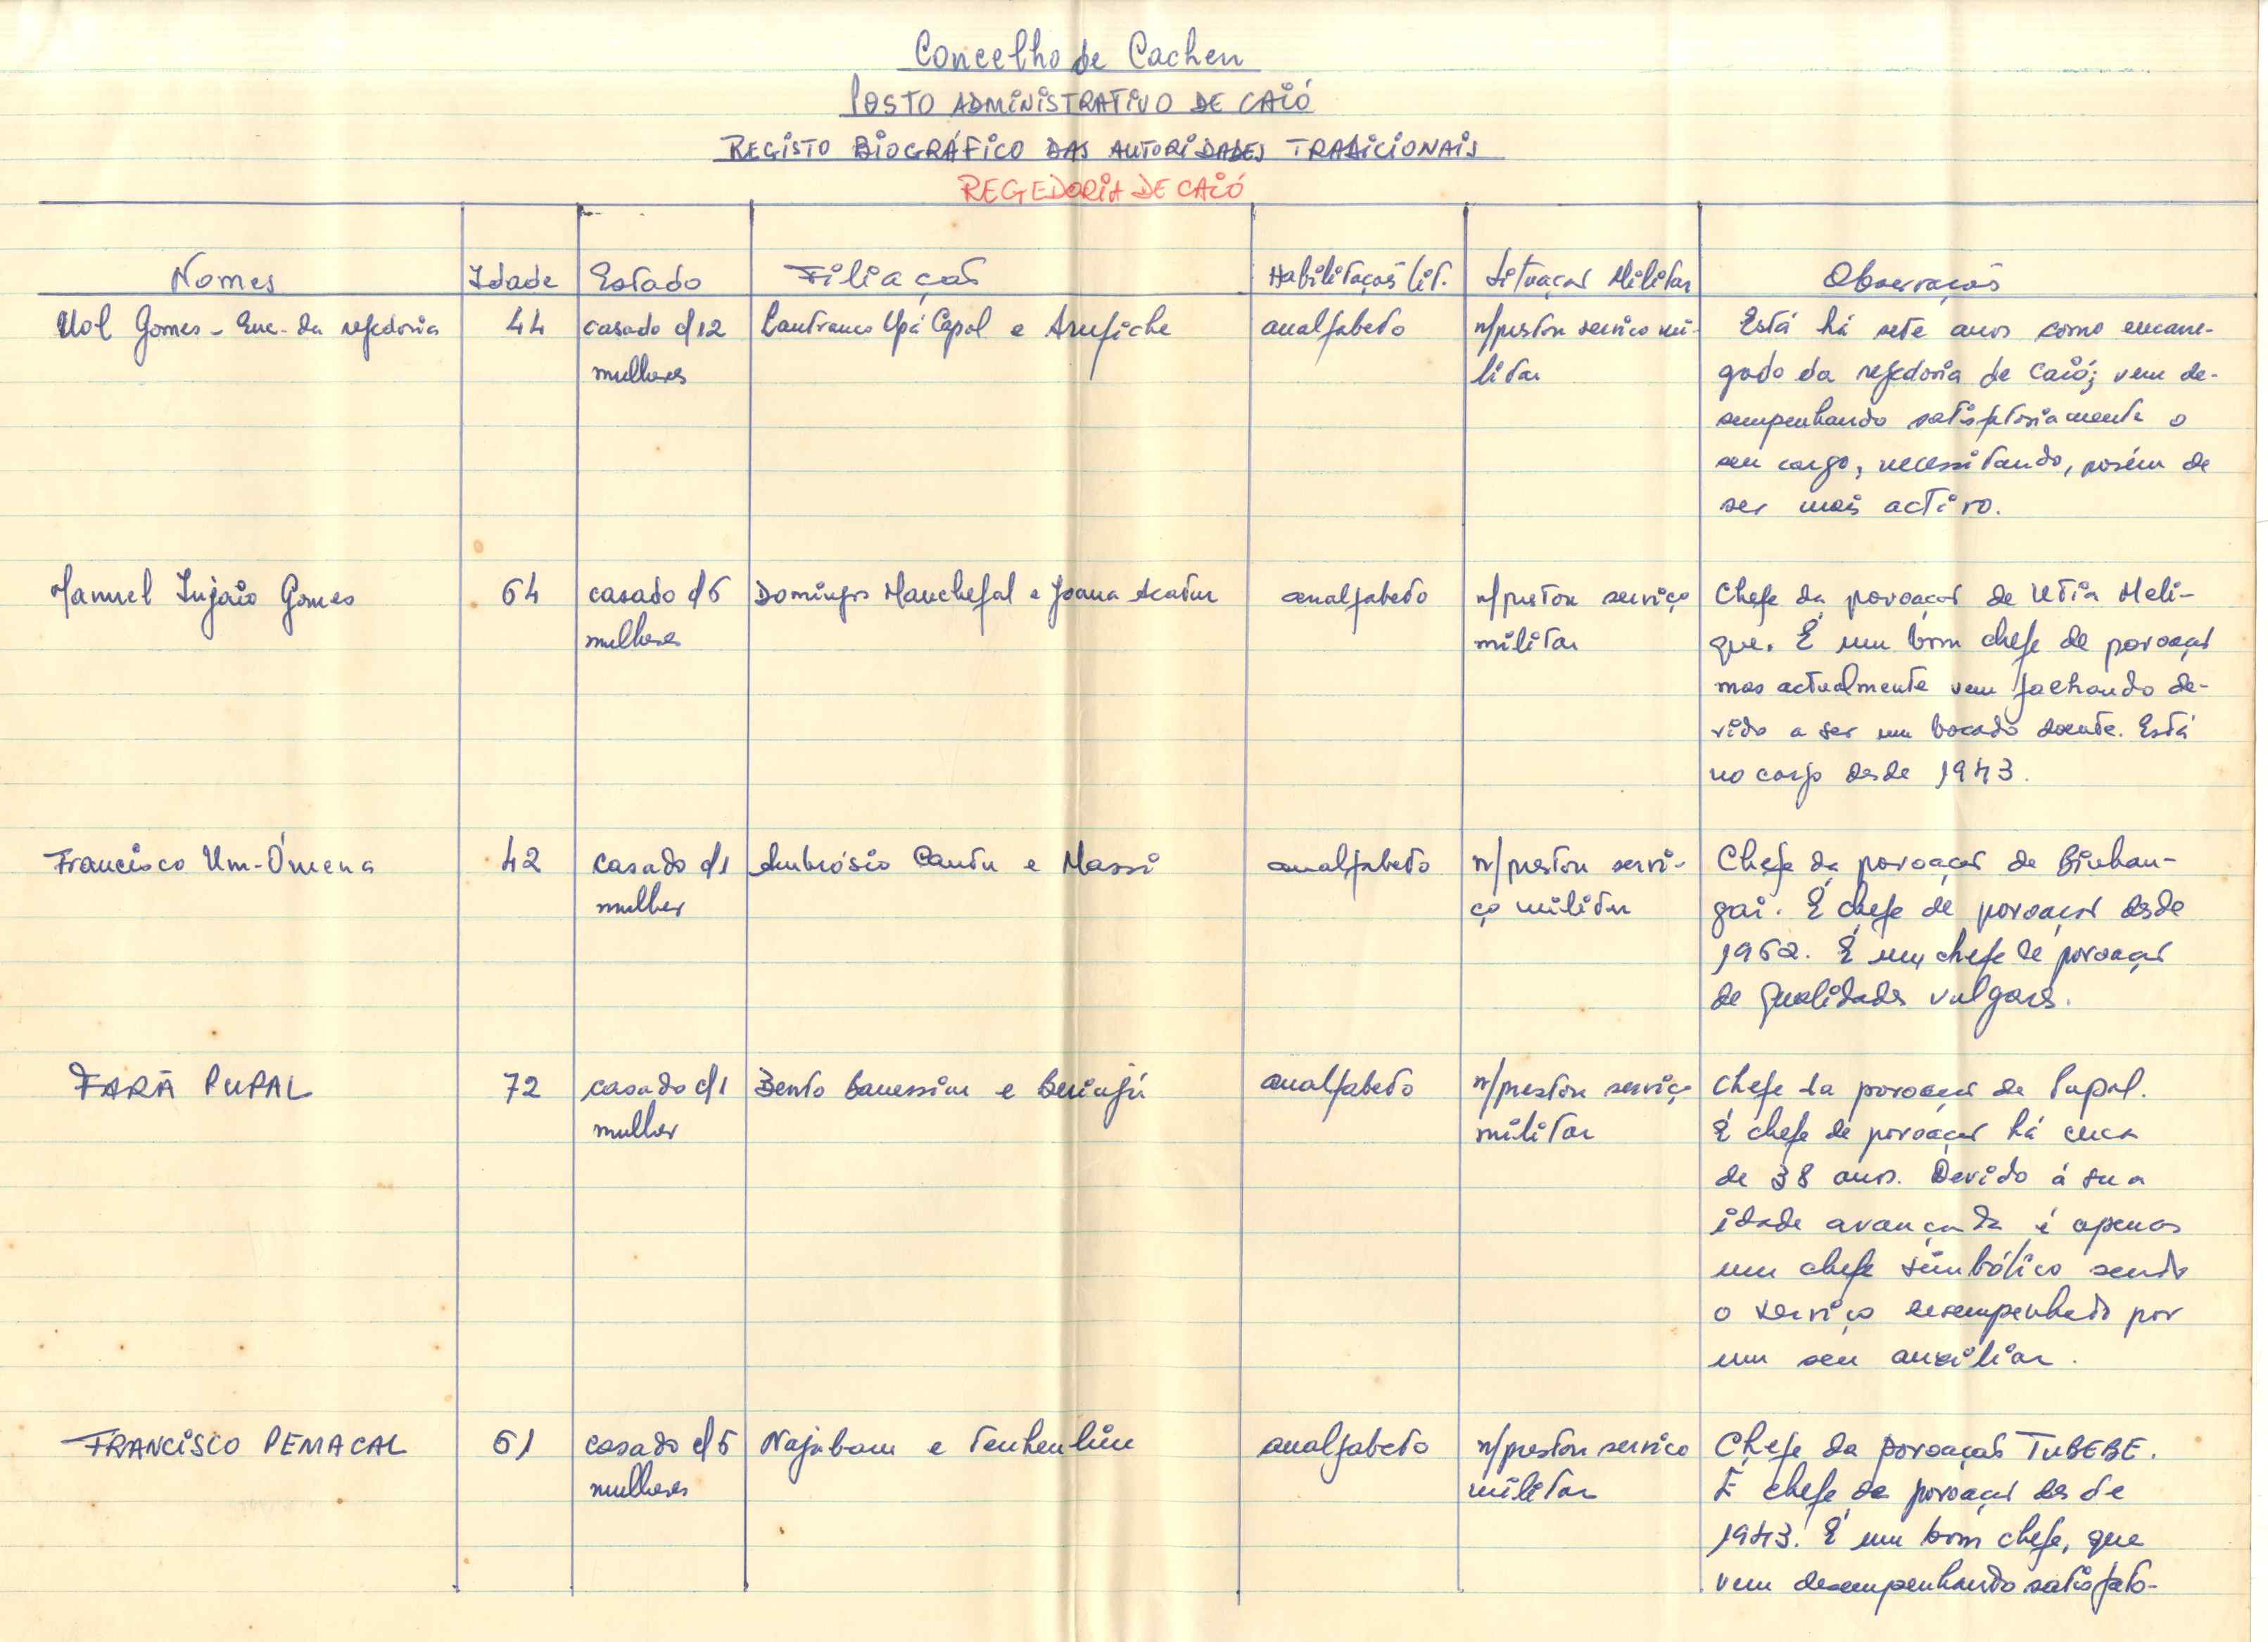 Concelho de Cacheu
POSTO ADMINISTRATIVO DE CAIÓ
REGISTO BIOGRÁFICO DAS AUTORIDADES TRADICIONAIS
REGEDORIA DE CAIÓ
Nomes Idade Estado Filiação Habilitações lit. Situação Militar Observações
Uol Gomes - Enc. da regedoria 44 casado c/12 Gomes e analfabeto n/prestou serviço mi- Está há sete anos como encarre-
mulheres litar gado da regedoria de Caió; vem de-
sempenhando satisfatoriamente o
seu cargo, necessitando, porém de
ser mais activo.
Manuel Injaio Gomes 64 casado c/6 Domingos e Joana analfabeto n/prestou serviço Chefe da povoação de Utia Meli-
mulheres militar que. É um bom chefe de povoação
mas actualmente vem fachando de-
vido a ser um bocado doente. Está
no cargo desde 1943.
Francisco Um-Ómena 42 casado c/1 Ambrósio Cantu e Massi analfabeto n/prestou servi- Chefe da povoação de Binhan-
mulher ço militar gai. É chefe de povoação desde
1962. É um chefe de povoação
de qualidades vulgares.
FARÃ PUPAL 72 casado c/1 Bento e analfabeto n/prestou serviço Chefe da povoação de Pupal.
mulher militar É chefe de povoação há cerca
de 38 anos. Devido á sua
idade avançada é apenas
um chefe simbólico sendo
o serviço desempenhado por
um seu auxiliar.
FRANCISCO PEMACAL 61 casado c/5 Najabam e analfabeto n/prestou serviço Chefe da povoação TUBEBE.
mulheres militar É chefe de povoação desde
1943. É um bom chefe, que
vem desempenhando satisfato-